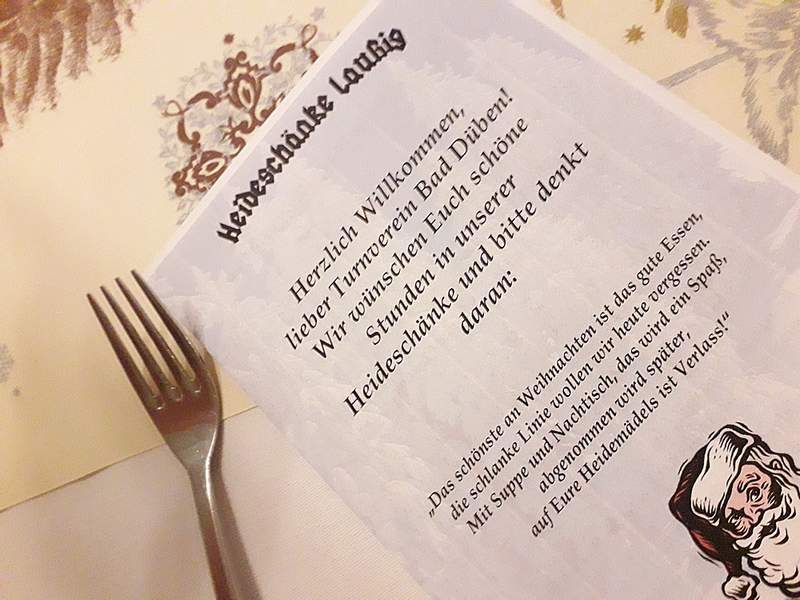 Heideschänke Laußig
Herzlich Willkommen,
lieber Turnverein Bad Düben!
Wir wünschen Euch schöne
Stunden in unserer
Heideschänke und bitte denkt
daran:
„Das schönste an Weihnachten ist das gute Essen,
die schlanke Linie wollen wir heute vergessen.
Mit Suppe und Nachtisch, das wird ein Spaß,
abgenommen wird später,
auf Eure Heidemädels ist Verlass!“